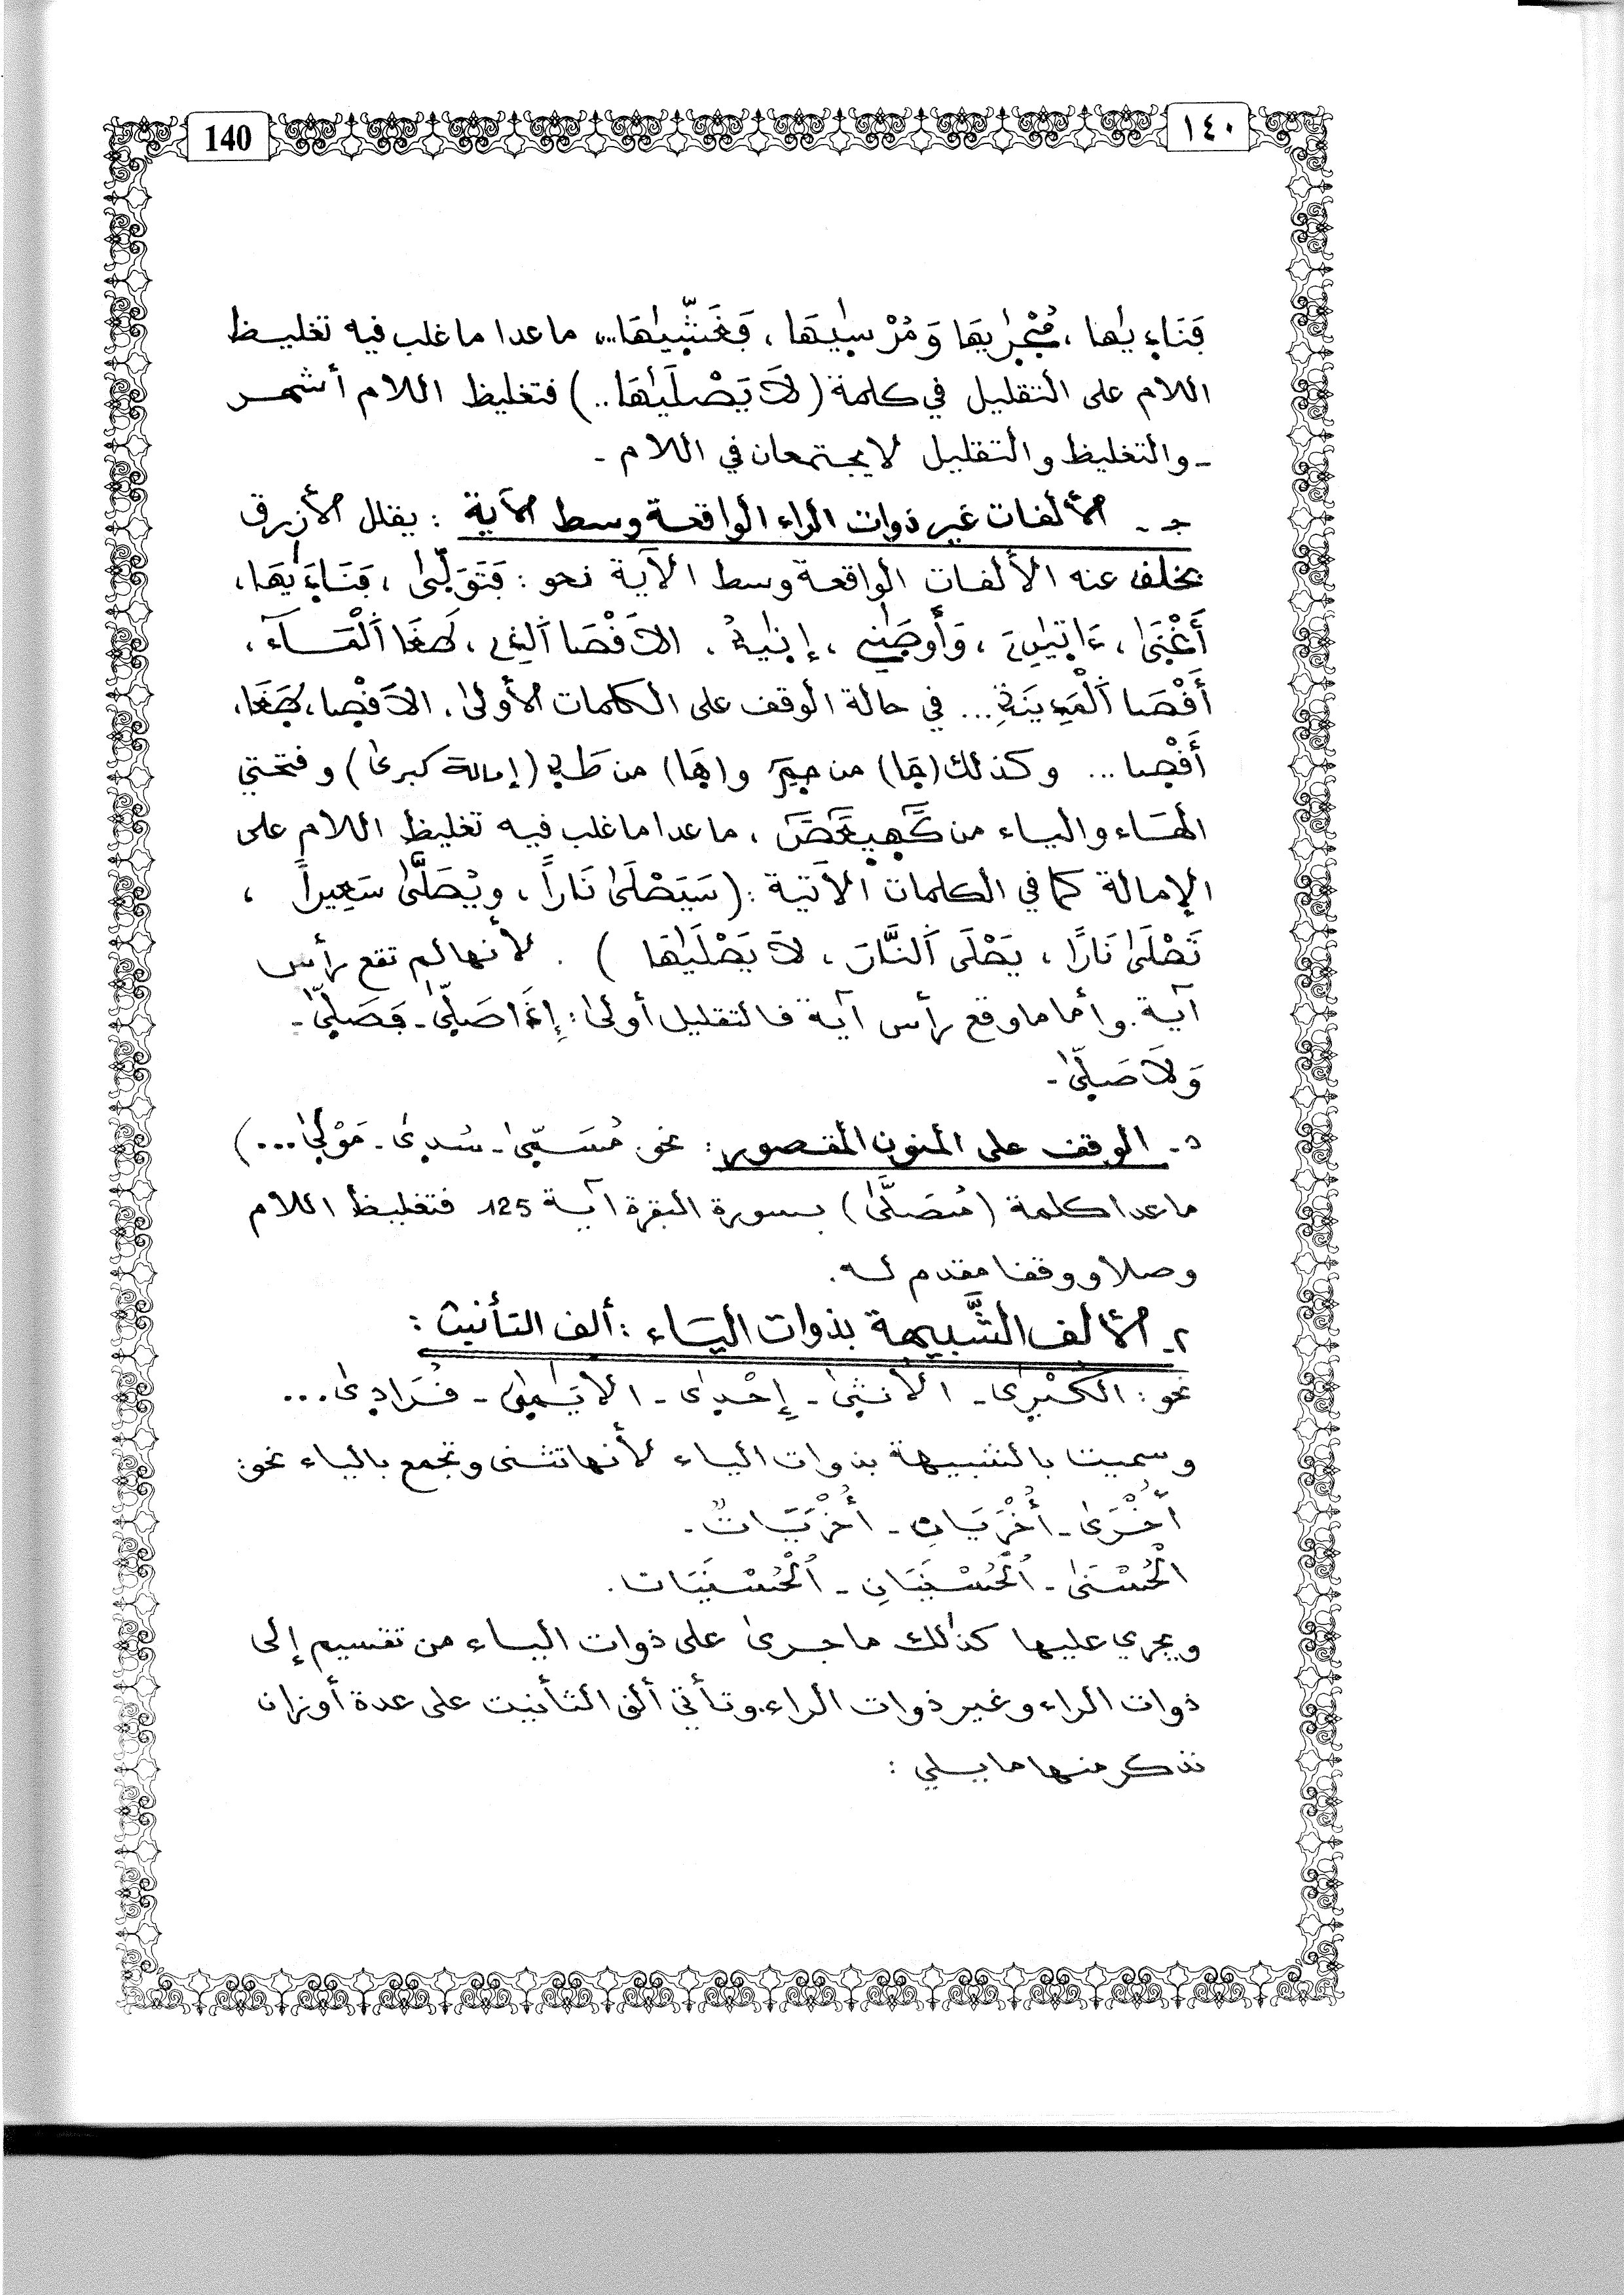 140
١٤٠
فَنَاد۪يٰهَا ، مُجْر۪يٰهَا وَمُرْسٰيهَا ، فَغَشّٰيهَا... ، ماعدا ما غلب فيه تغليظ
اللام على التقليل في كلمة (لاَ يَصْلَيٰهَا..) فتغليظ اللام أشهر
- والتغليظ والتقليل لا يجتمعان في اللام -
جـ - الألفات غير ذوات الراء الواقعة وسط الآية : يقلل الأزرق
بخلف عنه الألفات الواقعة وسط الآية نحو : فَتَوَلّىٰ ، فَنَادَيٰهَا ،
أَغْنىٰ ، ءَاتيٰنِۦَ ، وَأَوْصٰنِے ، إِنيٰهُ . الاَقْصَا اَلذِے ، طَغَا اَلْمَآءُ ،
أَقْصَا اَلْمَدِينَةِ... في حالة الوقف على الكلمات الأولى . الاَقْصا ، طَغَا ،
أَقْصا ... وكذلك (حا) من حم و (ها) من طه (إمالة كبرى) وفتحتي
الهاء والياء من كَهيعص ، ماعدا ما غلب فيه تغليظ اللام على
الإمالة كما في الكلمات الآتية : (سَيَصْلَىٰ نَاراً ، ويُصَلَّىٰ سَعِيراً ،
تَصْلَىٰ نَارًا ، يَصْلَى اَلنَّارَ ، لاَ يَصْلَيٰهَا ) . لأنها لم تقع رأس
آية . وأما ما وقع رأس آية فالتقليل أولى : إِذَا صَلّىٰ - فَصَلّىٰ -
وَلاَ صَلّىٰ -
د - الوقف على المنون المقصور : نحو مُسَمّىٰ - سُدىٰ - مَوْلىٰ ...)
ماعدا كلمة (مُصَلَّىٰ) بسورة البقرة آية 125 فتغليظ اللام
وصلا ووقفا مقدم له .
2 - الألف الشَّبيهة بذوات الياء : ألف التأنيث :
نحو : الكُبْرىٰ - الأنثىٰ - إِحْدىٰ - الأيَـٰمىٰ - فُرَادىٰ ...
وسميت بالشبيهة بذوات الياء لأنها تثنى وتجمع بالياء نحو :
أُخْرَىٰ - أُخْرَيَانِ - أُخْرَيَاتٌ -
الْحُسْنىٰ - اَلْحُسْنَيَانِ - اَلْحُسْنَيَات .
ويجري عليها كذلك ما جرىٰ على ذوات الياء من تقسيم إلى
ذوات الراء وغير ذوات الراء . وتأتي ألف التأنيث على عدة أوزان
نذكر منها ما يلي :